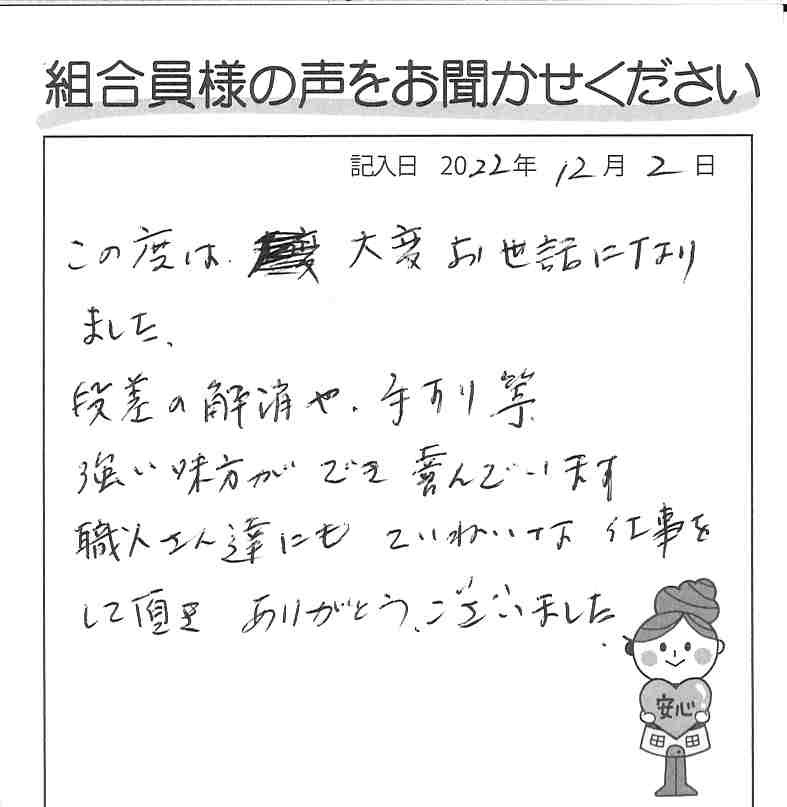 組合員様の声をお聞かせください
記入日 2022年 12月 2日
この度は 大変 お世話になり
ました、
段差の解消や、手すり等
強い味方ができ 喜んでいます
職人さん達にも ていねいな 仕事を
して頂き ありがとうございました.
安心